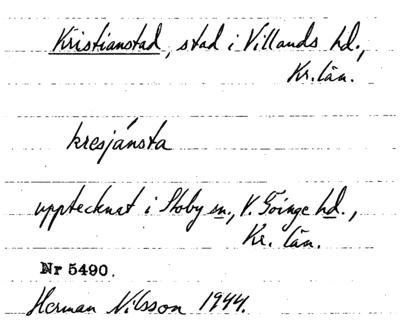 Kristianstad, stad i Villands hd.,
Kr. län.
kresjánsta
upptecknat i Stoby sn., V. Göinge hd.,
Kr. län.
Nr 5490.
Herman Nilsson 1944.